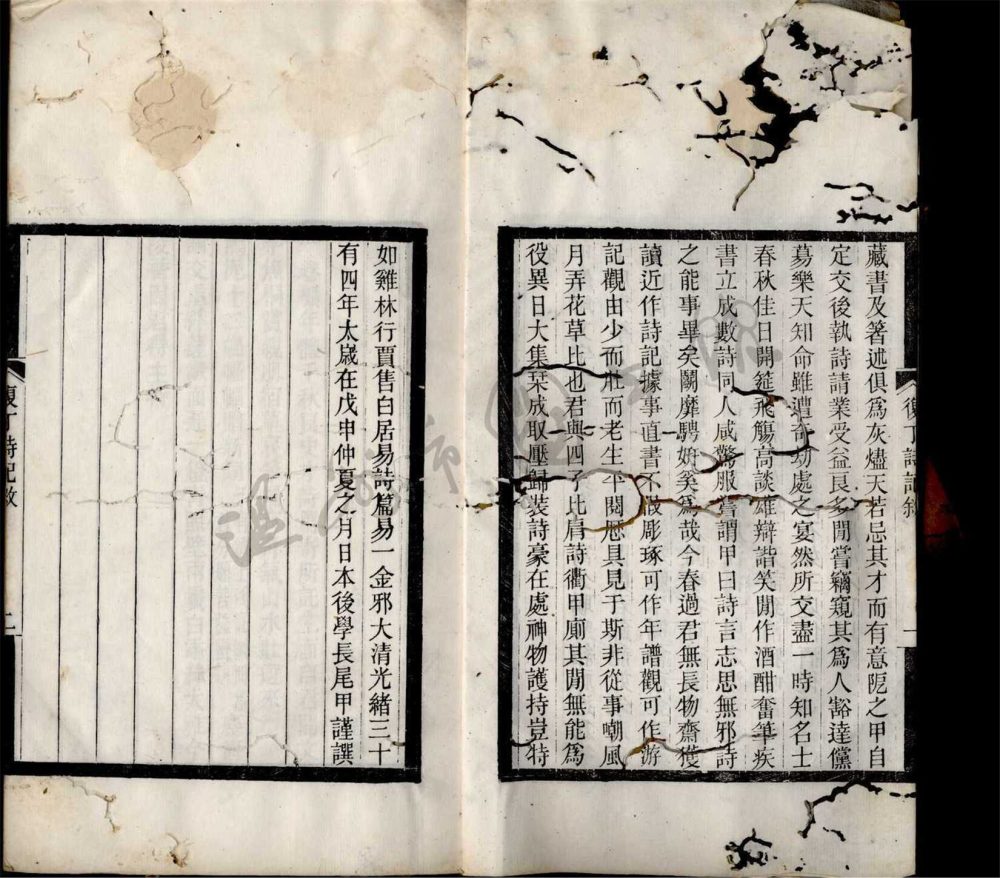 藏書及箸述俱爲灰燼天若忌其才而有意阨之甲自
定交後執詩請業受益良多閒嘗竊窺其爲人豁達儻
蕩樂天知命雖遭奇劫處之宴然所交盡一時知名士
春秋佳日開筵飛觴高談雄辯諧笑閒作酒酣奮筆疾
書立成數詩同人咸驚服嘗謂甲曰詩言志思無邪詩
之能事畢矣鬭靡騁妍奚爲哉今春過君無長物齋獲
讀近作詩記據事直書不假彫琢可作年譜觀可作游
記觀由少而壯而老生平閱歷具見于斯非從事嘲風
月弄花草比也君與四子比肩詩衢甲廁其閒無能爲
役異日大集栞成取壓歸裝詩豪在處神物護持豈特
復丁詩記敘
一
如雞林行賈售白居易詩篇易一金邪大清光緒三十
有四年太歲在戊申仲夏之月日本後學長尾甲謹譔
復丁詩記敘
二